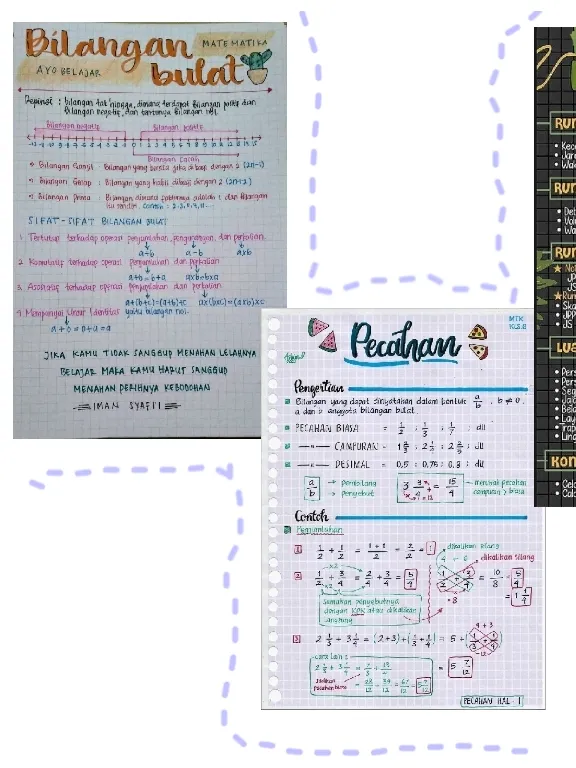 Bilangan
MATEMATIKA
AYO BELAJAR
bulat
Depinisi : bilangan tak hingga, dimana terdapat bilangan positip dan
bilangan negatip, dan tentunya bilangan nol.
bilangan negatip
bilangan positip
bilangan cacah
Bilangan Ganjil : Bilangan yang bersisa jika dibagi dengan 2 (2n-1)
Bilangan Genap : Bilangan yang habis dibagi dengan 2
Bilangan prima : Bilangan dimana paktornya adalah 1 dan bilangan
itu sendiri contoh : 2, 3, 5, 7, 11 ...
SIFAT-SIFAT BILANGAN BULAT
1. Tertutup terhadap operasi penjumlahan, pengurangan, dan perkalian
a+b a-b axb
2. Komutatip terhadap operasi penjumlahan dan perkalian
a+b = b+a axb=bxa
3. Asosiatip terhadap operasi penjumlahan dan perkalian
a+(b+c)=(a+b)+c ax(bxc)=(axb)xc
4. Mempunyai Unsur Identitas yaitu bilangan nol.
a+0=0+a=a
JIKA KAMU TIDAK SANGGUP MENAHAN LELAHNYA
BELAJAR MAKA KAMU HARUS SANGGUP
MENAHAN PERIHNYA KEBODOHAN
IMAM SYAFI'I
MTK
KLS.8
Pecahan
Pengertian
Bilangan yang dapat dinyatakan dalam bentuk a/b, b ≠ 0,
a dan b anggota bilangan bulat.
PECAHAN BIASA = 1/2 ; 1/3 ; 1/7 ; dll
CAMPURAN = 1 2/3 ; 2 1/2 ; 2 2/5 ; dll
DESIMAL = 0,5 ; 0,75 ; 0,3 ; dll
a → Pembilang
b → Penyebut
3 3/4 = 15/4
merubah pecahan
campuran > biasa
Contoh
Penjumlahan
1 1/2 + 1/2 = 1+1/2 = 2/2 = 1
dikalikan silang
4 + 6
dikalikan silang
2 1/2 + 3/4 = 2/4 + 3/4 = 5/4
1/2 + 3/4 = 10/8 = 5/4
= 1 1/4
8
Samakan penyebutnya
dengan KPK atau dikalikan
langsung
4 + 3
3 2 1/3 + 3 1/4 = (2+3)+(1/3+1/4) = 5 +
12
= 5 7/12
cara lain :
2 1/3 + 3 1/4 = 7/3 + 13/4
Jadikan
pecahan biasa
= 28/12 + 39/12 = 67/12 = 5 7/12
PECAHAN HAL - 1
RUM
RUM
RUM
JPP
JS
JPP
JS
LUA
KON